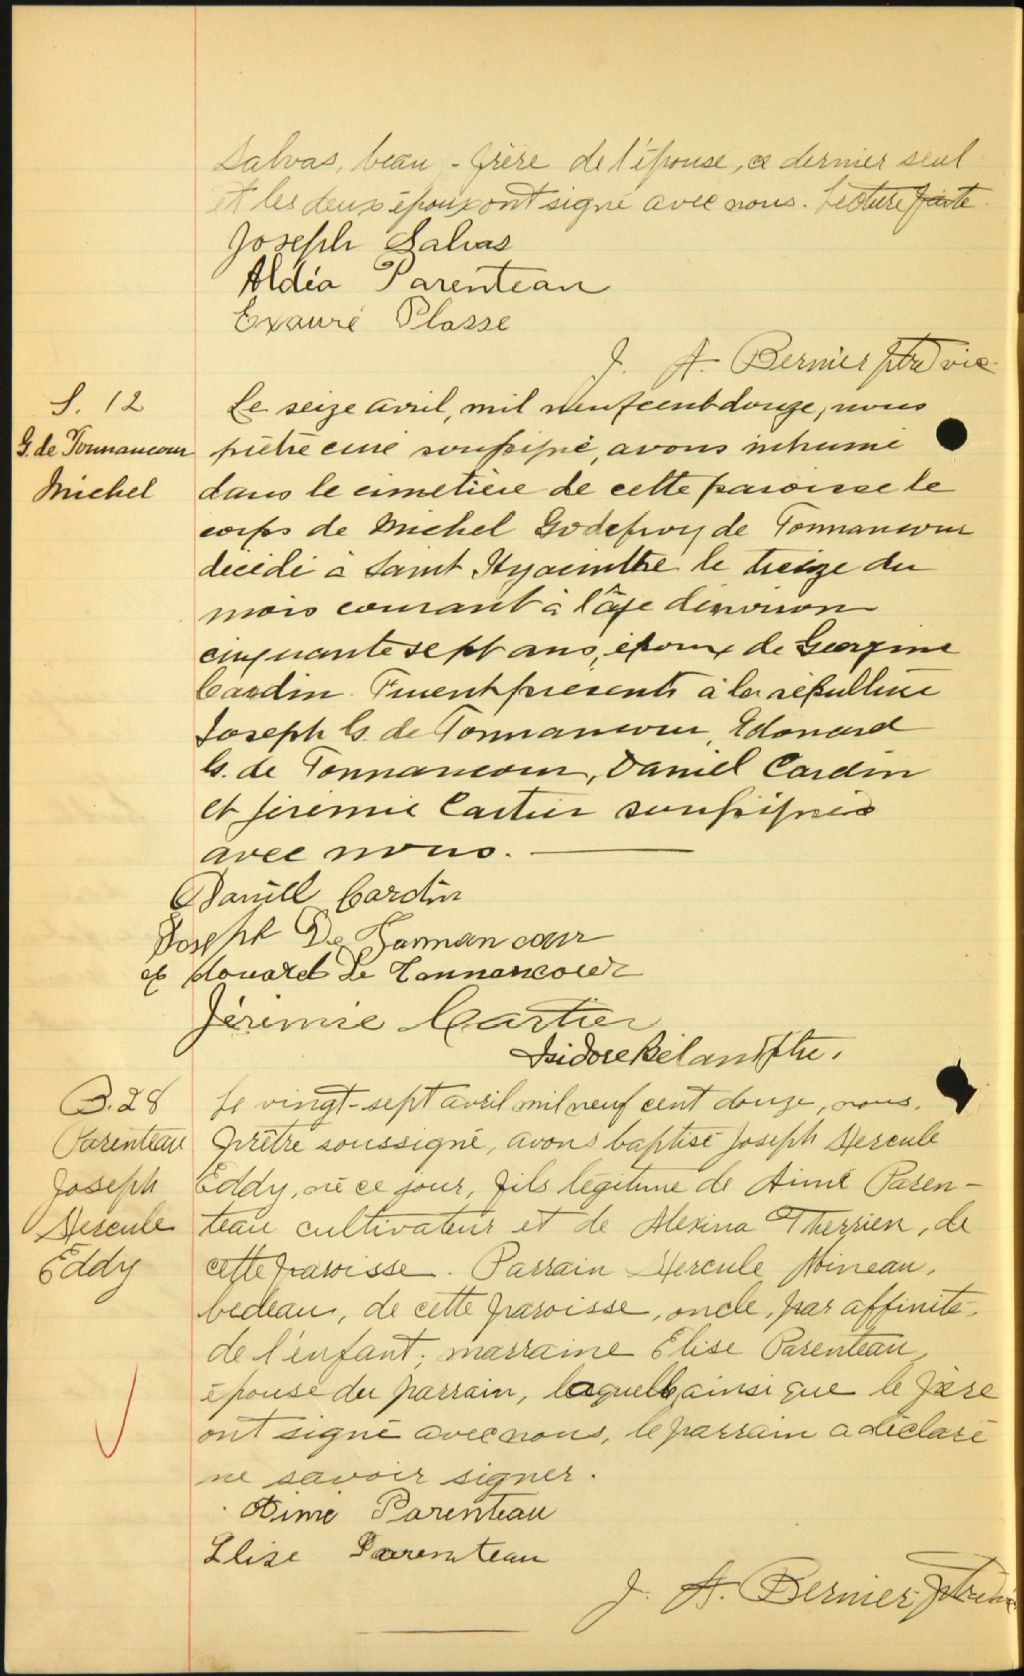 Salvas, beau-frère de l'épouse, ce dernier seul
et les deux époux ont signé avec nous. Lecture faite.
Joseph Salvas
Aldéa Parenteau
Exauré Plasse
J. A. Bernier ptre vic.
S. 12
G. de Tonnancour
Michel
Le seize avril, mil neuf cent douze, nous
prêtre curé soussigné, avons inhumé
dans le cimetière de cette paroisse le
corps de Michel Godefroy de Tonnancour
décédé à Saint Hyacinthe le treize du
mois courant à l'âge d'environ
cinquante sept ans, époux de Georgine
Cardin. Furent présents à la sépulture
Joseph G. de Tonnancour, Edouard
G. de Tonnancour, Daniel Cardin
et Jérémie Cartier soussignés
avec nous.
Daniel Cardin
Joseph De Tonnancour
Edouard De Tonnancour
Jérémie Cartier
Isidore Béland Ptre.
B. 28
Parenteau
Joseph
Hercule
Eddy
Le vingt-sept avril mil neuf cent douze, nous,
prêtre soussigné, avons baptisé Joseph Hercule
Eddy, né ce jour, fils légitime de Aimé Paren-
teau cultivateur et de Alexina Therrien, de
cette paroisse. Parrain Hercule Moineau,
bedeau, de cette paroisse, oncle, par affinité,
de l'enfant; marraine Elise Parenteau,
épouse du parrain, laquelle, ainsi que le père
ont signé avec nous, le parrain a déclaré
ne savoir signer.
Aimé Parenteau
Elise Parenteau
J. A. Bernier, Ptre vic.